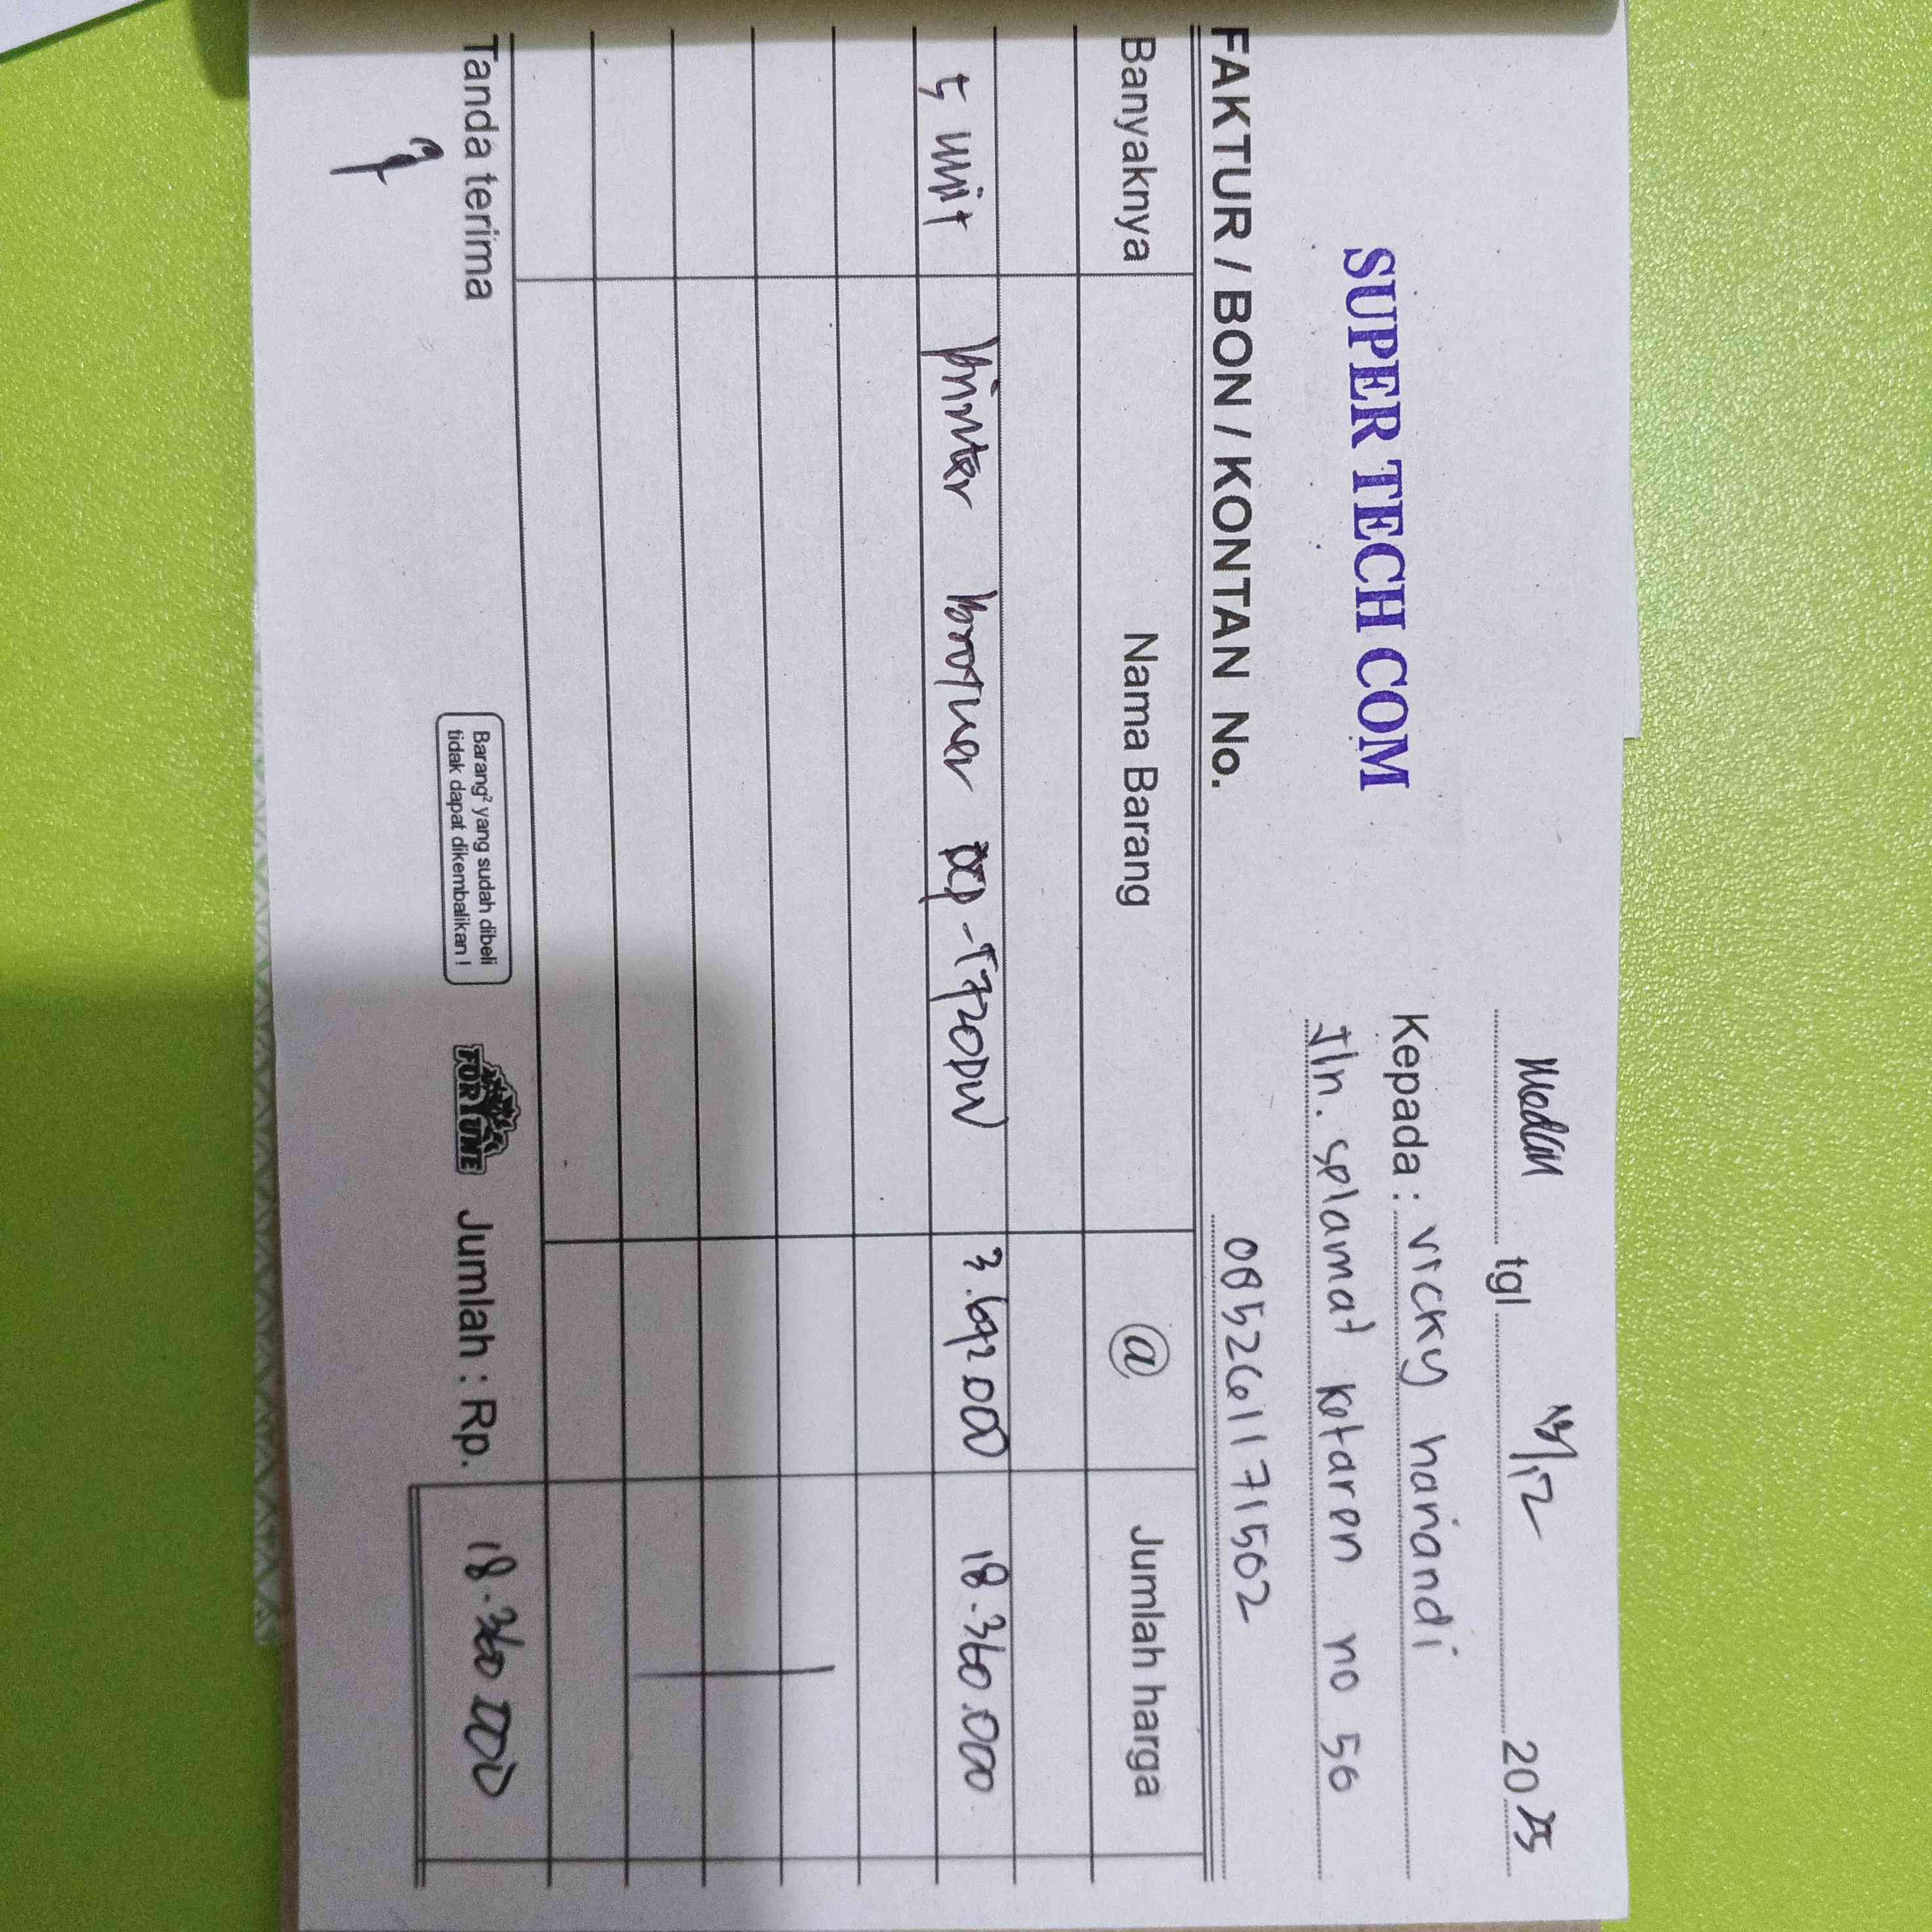 SUPER TECH COM
Medan tgl 20 25
Kepada : Vicky hariandi
Jln. selamat ketaren no 56
FAKTUR / BON / KONTAN No. 085261171502
Banyaknya Nama Barang @ Jumlah harga
5 unit printer brother DCP-T720DW 3.692.000 18.360.000
Tanda terima
Barang² yang sudah dibeli
tidak dapat dikembalikan !
FORTUNE
Jumlah : Rp. 18.360.000